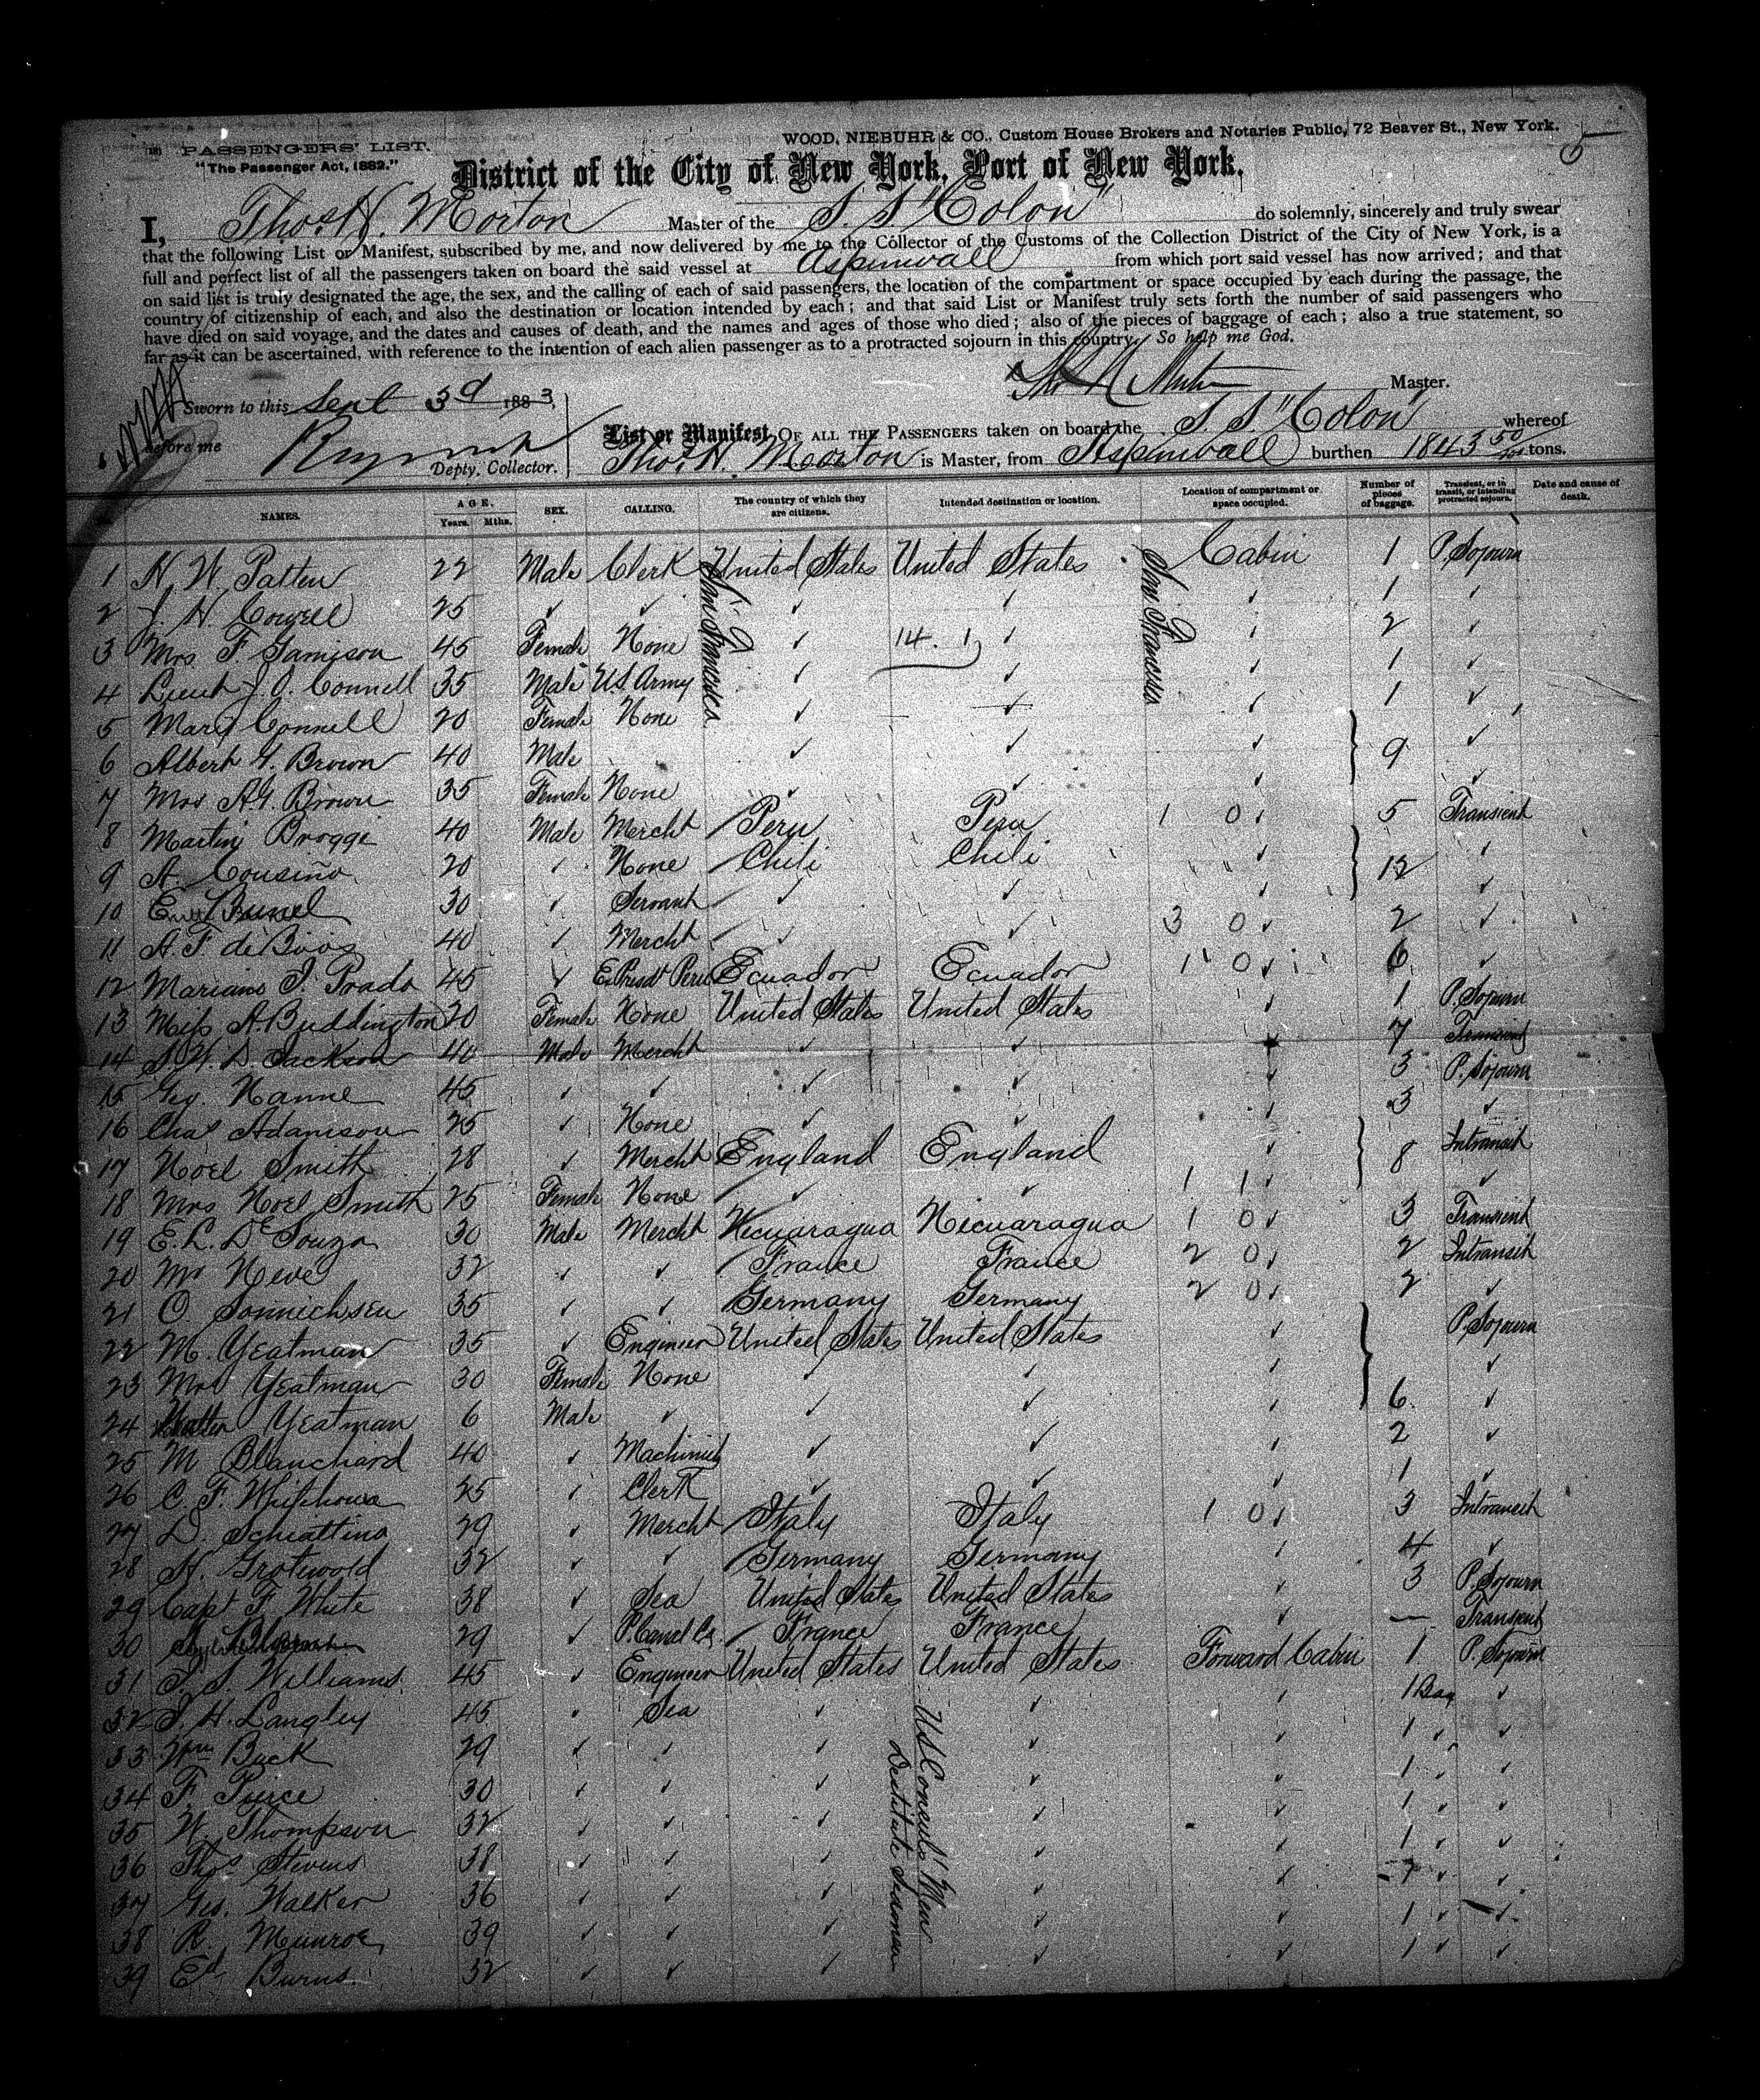 PASSENGERS' LIST.
"The Passenger Act, 1882."
WOOD, NIEBUHR & CO., Custom House Brokers and Notaries Public, 72 Beaver St., New York.
5
District of the City of New York, Port of New York.
I, Thos. H. Morton Master of the S. S "Colon" do solemnly, sincerely and truly swear
that the following List or Manifest, subscribed by me, and now delivered by me to the Collector of the Customs of the Collection District of the City of New York, is a
full and perfect list of all the passengers taken on board the said vessel at Aspinwall from which port said vessel has now arrived; and that
on said list is truly designated the age, the sex, and the calling of each of said passengers, the location of the compartment or space occupied by each during the passage, the
country of citizenship of each, and also the destination or location intended by each; and that said List or Manifest truly sets forth the number of said passengers who
have died on said voyage, and the dates and causes of death, and the names and ages of those who died; also of the pieces of baggage of each; also a true statement, so
far as it can be ascertained, with reference to the intention of each alien passenger as to a protracted sojourn in this country. So help me God.
Master.
Sworn to this Sept 3d 1883,
before me
Depty. Collector.
List or Manifest OF ALL THE PASSENGERS taken on board the S. S "Colon" whereof
Thos. H. Morton is Master, from Aspinwall burthen 1843 50/100 tons.
NAMES. AGE. Years. Mths. SEX. CALLING. The country of which they are citizens. Intended destination or location. Location of compartment or space occupied. Number of pieces of baggage. Transient, or in transit, or intending protracted sojourn. Date and cause of death.
1 H. W. Patten 22 Male Clerk United States United States Cabin 1 P. Sojourn
2 J. H. Cowell 25 ✓ ✓ ✓ ✓ ✓ 1 ✓
3 Mrs. F. Jamison 45 Female None ✓ 14. 1 ✓ ✓ 2 ✓
4 Lieut J. O. Connell 35 Male U.S. Army ✓ ✓ ✓ 1 ✓
5 Mary Connell 20 Female None ✓ ✓ ✓ 1 ✓
San Francisco
San Francisco
6 Albert G. Brown 40 Male ✓ ✓ ✓ 9 ✓
7 Mrs A.G. Brown 35 Female None ✓ ✓ ✓ ✓
8 Martin Brogge 40 Male Mercht Peru Peru 1 0 ✓ 5 Transient
9 A. Cousiño 20 ✓ None Chili Chili ✓ 12 ✓
10 30 ✓ Servant ✓ ✓ ✓ ✓
11 A. F. de 40 ✓ Mercht ✓ ✓ 3 0 ✓ 2 ✓
12 Mariano I. Prado 45 ✓ Ex Presdt Peru Ecuador Ecuador 1 0 ✓ 6 ✓
13 Miss A. Buddington 20 Female None United States United States ✓ 1 P. Sojourn
14 S. W. D. Jackson 40 Male Mercht ✓ ✓ ✓ 7 Transient
15 Geo. Nanne 45 ✓ ✓ ✓ ✓ ✓ 3 P. Sojourn
16 Chas Adamson 25 ✓ None ✓ ✓ ✓ 3 ✓
17 Noel Smith 28 ✓ Mercht England England ✓ 8 Intransit
18 Mrs Noel Smith 25 Female None ✓ ✓ 1 1 ✓ ✓
19 E. L. De Souza 30 Male Mercht Nicuaragua Nicuaragua 1 0 ✓ 3 Transient
20 Mr Neve 32 ✓ ✓ France France 2 0 ✓ 2 Intransit
21 O. Sonnichsen 35 ✓ ✓ Germany Germany 2 0 ✓ 2 ✓
22 M. Yeatman 35 ✓ Engineer United States United States ✓ P. Sojourn
23 Mrs Yeatman 30 Female None ✓ ✓ ✓ ✓
24 Walter Yeatman 6 Male ✓ ✓ ✓ ✓ 6 ✓
25 M Blanchard 40 ✓ Machinist ✓ ✓ ✓ 2 ✓
26 C. F. Whitehouse 25 ✓ Clerk ✓ ✓ ✓ 1 ✓
27 D. Schiattino 29 ✓ Mercht Italy Italy 1 0 ✓ 3 Intransit
28 H. Grotewold 32 ✓ ✓ Germany Germany ✓ 4 ✓
29 Capt F. White 38 ✓ Sea United States United States ✓ 3 P. Sojourn
30 29 ✓ P. Canal Co. France France ✓ — Transient
31 S. Williams 45 ✓ Engineer United States United States Forward Cabin 1 P. Sojourn
32 J. H. Langley 45 ✓ Sea ✓ ✓ ✓ 1 Bag ✓
33 Wm Buck 29 ✓ ✓ ✓ ✓ ✓ 1 ✓ ✓
34 F Pierce 30 ✓ ✓ ✓ ✓ ✓ 1 ✓ ✓
35 W. Thompson 32 ✓ ✓ ✓ ✓ ✓ 1 ✓ ✓
36 Thos Stevens 38 ✓ ✓ ✓ ✓ ✓ 1 ✓ ✓
37 Geo. Walker 36 ✓ ✓ ✓ ✓ ✓ 1 ✓
38 R. Munroe 39 ✓ ✓ ✓ ✓ ✓ 1 ✓ ✓
39 Ed. Burns 32 ✓ ✓ ✓ ✓ ✓ 1 ✓ ✓
US Consuls' Men
Destitute Seamen